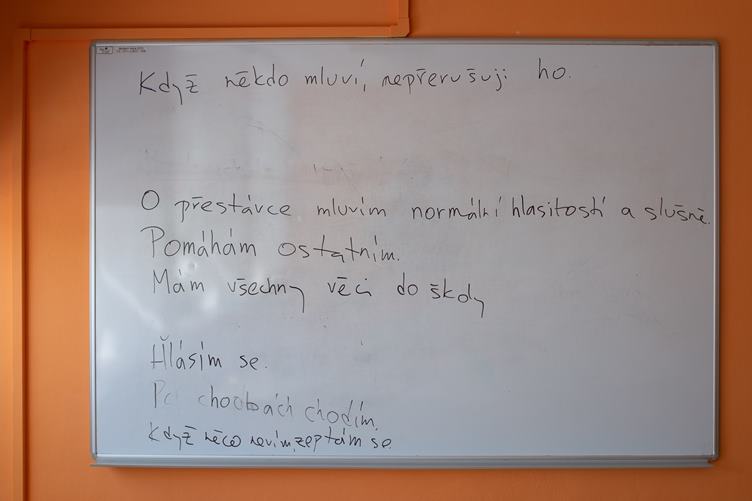 Když někdo mluví, nepřerušuji ho.
O přestávce mluvím normální hlasitostí a slušně.
Pomáhám ostatním.
Mám všechny věci do školy
Hlásím se.
Po chodbách chodím.
Když něco nevím, zeptám se.